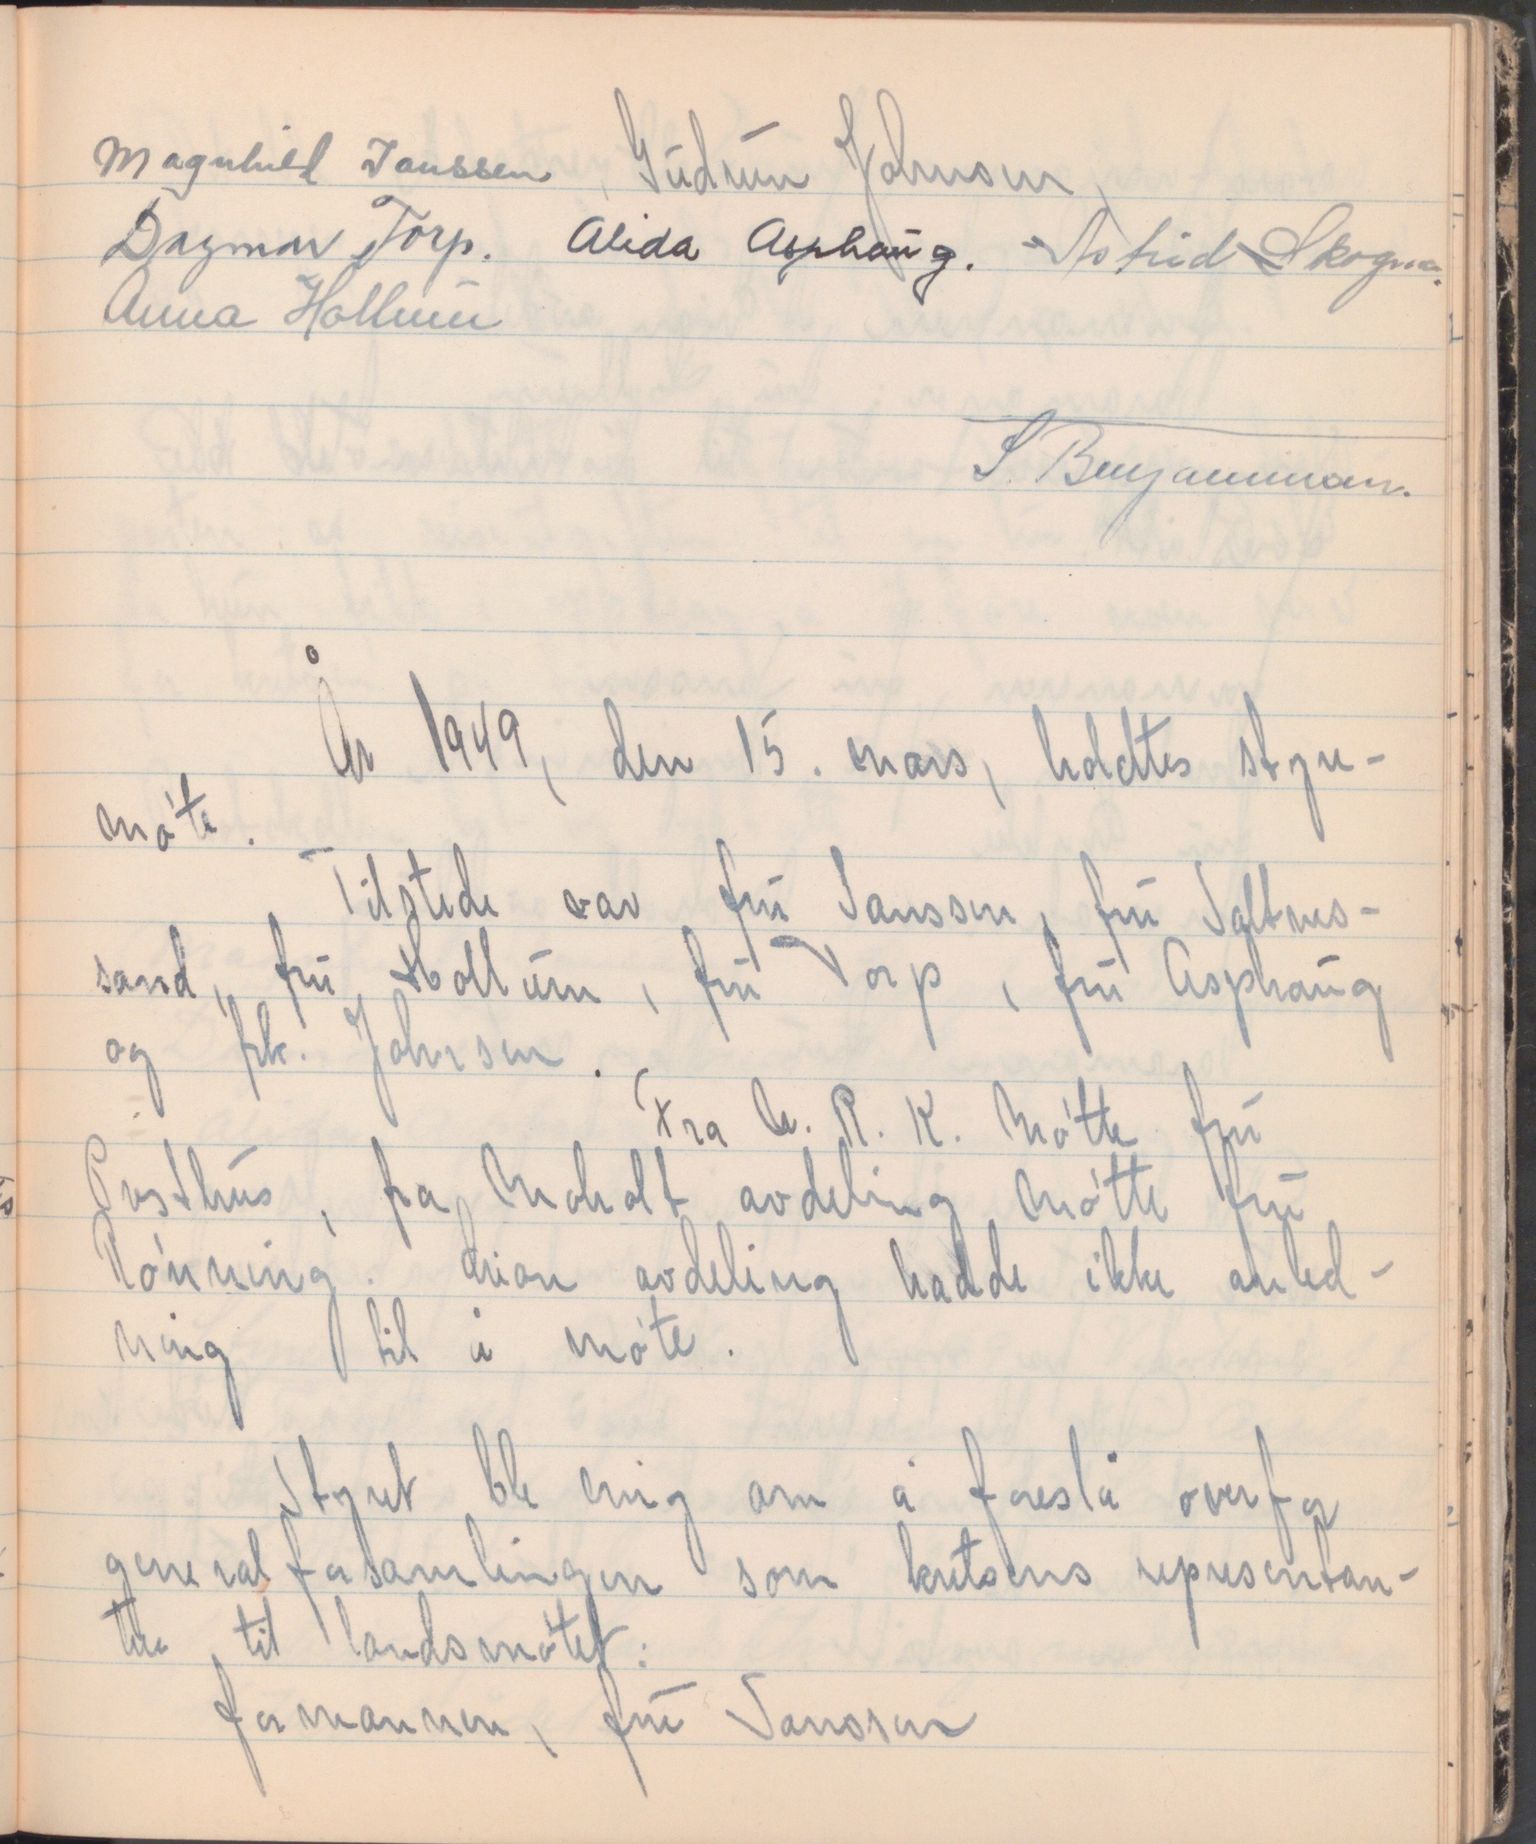 Magnhild Janssen, Gudrun Johnsen,
Dagmar Torp. Alida Asphaug. Astrid Skogmo.
Anna Hollum
S. Benjaminsen.
År 1949, den 15. mars, holdtes styre-
møte.
Tilstede var fru Jansson, fru Saltnes-
sand, fru Hollum, fru Torp, fru Asphaug
og frk. Johnsen.
Fra U. R. K. møtte fru
Posthus, fra Moholt avdeling møtte fru
Rønning. avdeling hadde ikke anled-
ning til å møte.
Styret ble enig om å foreslå overfor
generalforsamlingen som kretsens representan-
ter til landsmøtet:
formannen, fru Jansson